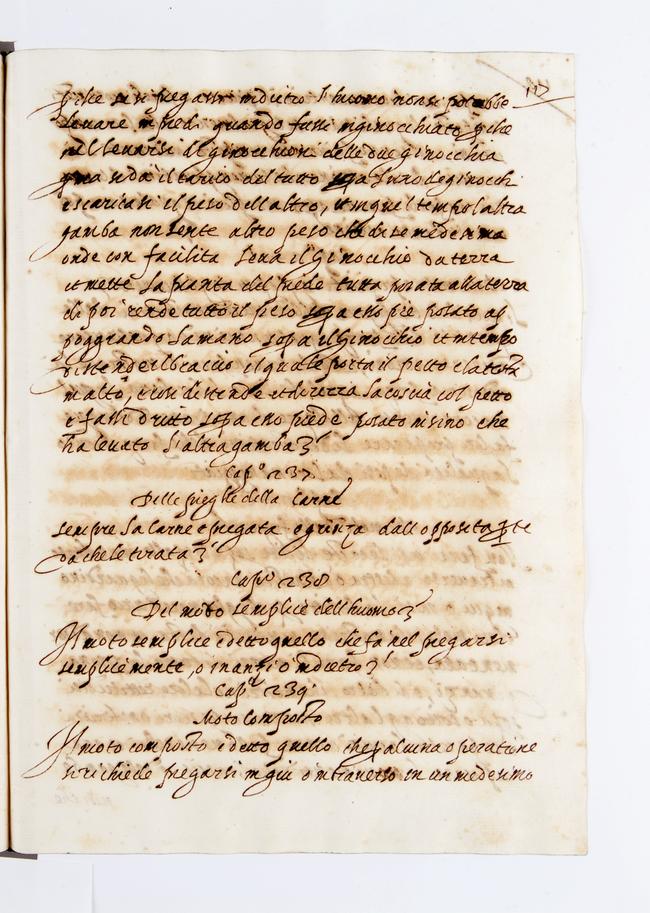 117
p che se si piegassi indietro l huomo non si potrebbe
levare in piedi quando fussi inginocchiato p che
nel levarsi di ginocchioni delle due ginocchia
prima si da il carico del tutto sopa l uno de ginocchi
e scaricasi il peso dell altro, et in quel tempo l altra
gamba non sente altro peso che di se medesima
onde con facilita leva il Ginocchio da terra
et mette la pianta del piede tutta posata alla terra
di poi rende tutto il peso sopa esso pie posato ap
poggiando la mano sopa il ginocchio et in tempo
distende il braccio il quale porta il petto e la testa
in alto, e cosi distende et dirizza la coscia col petto
e fassi dritto sopa esso piede posato insino che
ha levato l altra gamba
Cap.º 237
Delle pieghe della Carne
sempre la carne e piegata o grinza dall opposita pte
da che le tirata
Cap.º 238
Del moto semplice dell huomo
Il moto semplice e detto quello che fa nel piegarsi
semplicemente, o inanzi o indietro
Cap.º 239
Moto Composto
Il moto composto e detto quello che p alcuna operatione
si richiede piegarsi in giu o intraverso in un medesimo